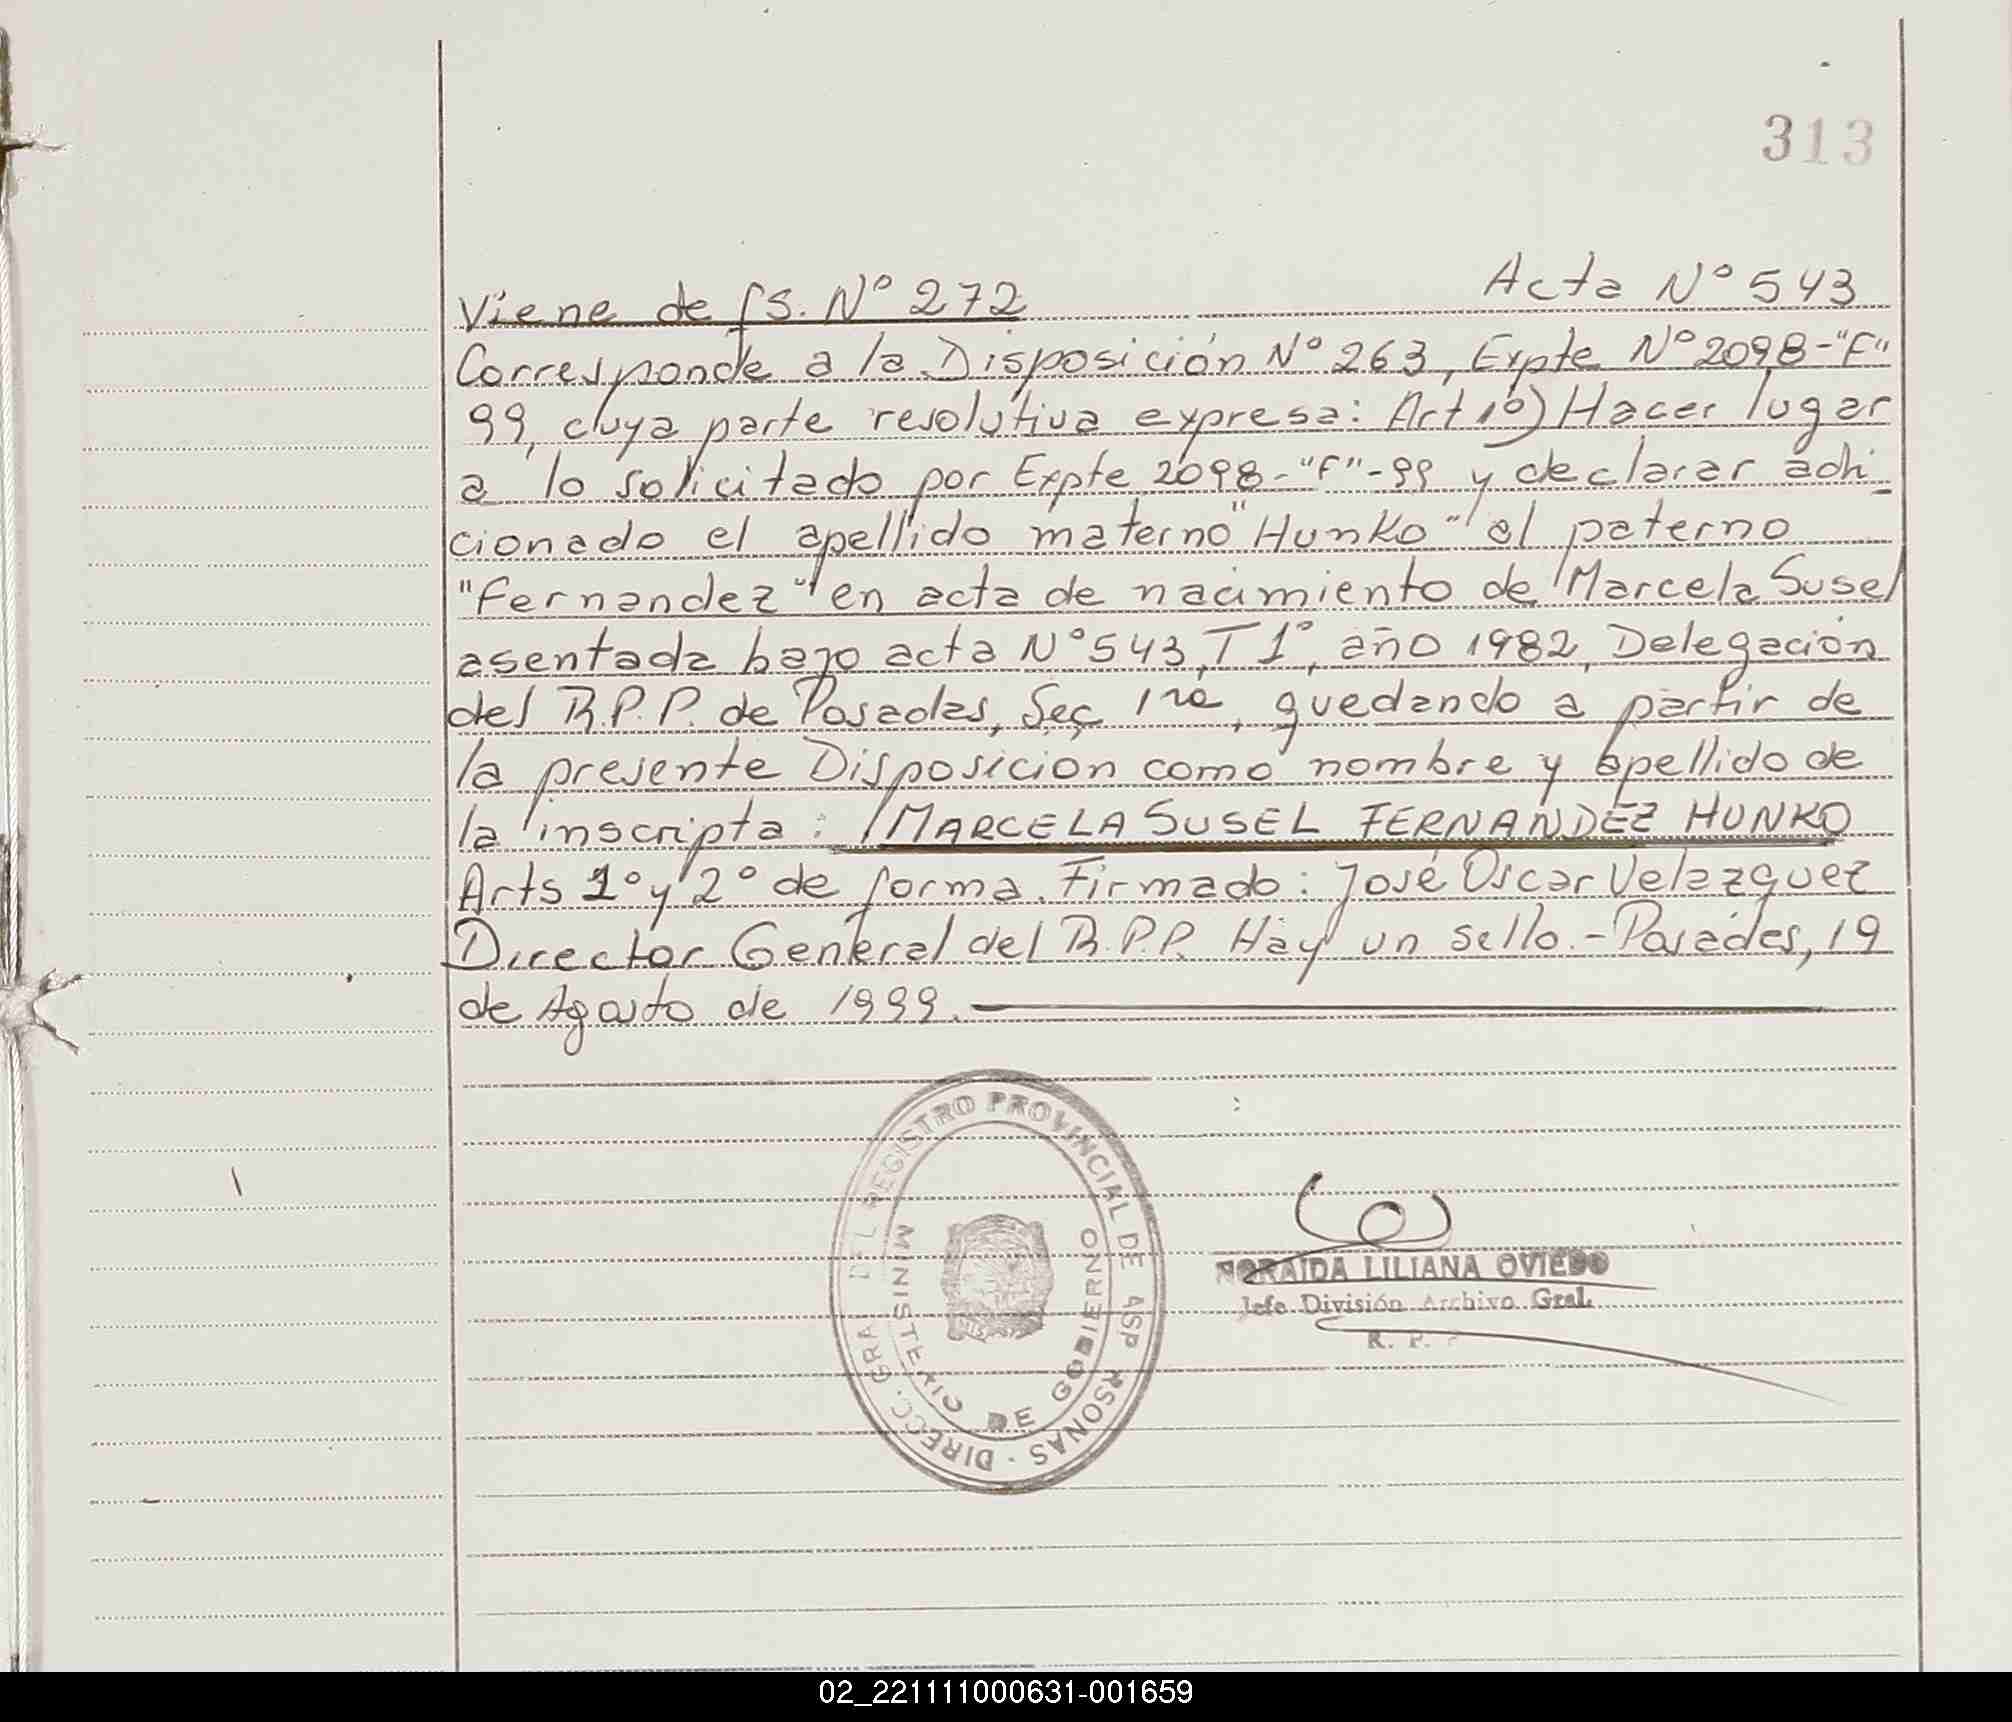 313
Viene de fs. Nº 272 Acta Nº 543
Corresponde a la Disposición Nº 263, Expte Nº 2098-"F"
99, cuya parte resolutiva expresa: Art 1º) Hacer lugar
a lo solicitado por Expte 2098-"F"-99 y declarar adi-
cionado el apellido materno "Hunko" al paterno
"Fernandez" en acta de nacimiento de Marcela Susel
asentada bajo acta Nº 543, T 1º, año 1982, Delegación
del R.P.P. de Posadas, Sec 1ra, quedando a partir de
la presente Disposicion como nombre y apellido de
la inscripta: MARCELA SUSEL FERNANDEZ HUNKO
Arts 1º y 2º de forma. Firmado: José Oscar Velazquez
Director General del R.P.P. Hay un sello.- Posadas, 19
de Agosto de 1999.
DIRECC. GRA DEL REGISTRO PROVINCIAL DE
RSONAS
MINISTERIO DE GOBIERNO
NORAIDA LILIANA OVIEDO
Jefe División Archivo Gral.
R. P.
02_221111000631-001659